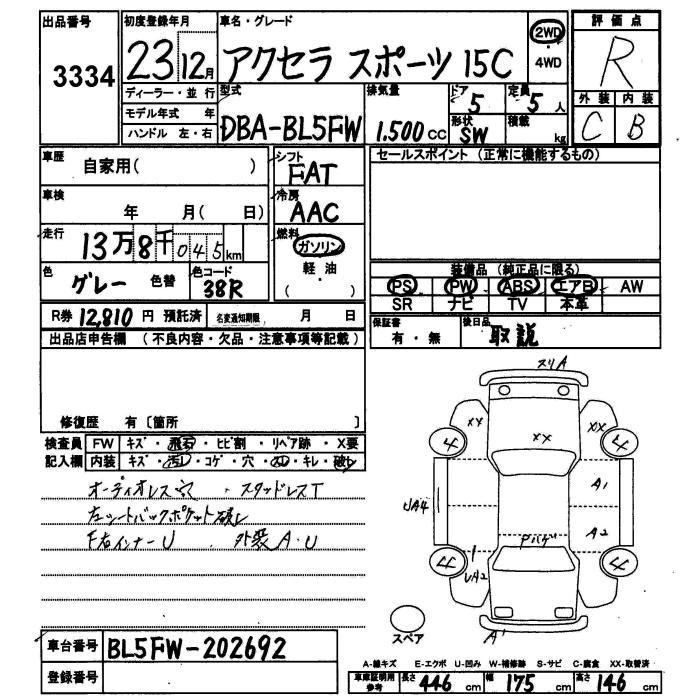 出品番号 3334
初度登録年月 23 12月
車名・グレード アクセラ スポーツ 15C
2WD ・ 4WD
評価点 R
外装 C 内装 B
ディーラー・並行
モデル年式 年
ハンドル 左・右
型式 DBA-BL5FW
排気量 1.500cc
ドア 5
形状 SW
定員 5人
積載 kg
車歴 自家用( )
シフト FAT
セールスポイント (正常に機能するもの)
車検 年 月( 日)
冷房 AAC
走行 13万8千045km
燃料 ガソリン 軽・油 ( )
色 グレー 色替
色コード 38R
装備品 (純正品に限る)
PS PW ABS エアB AW
SR ナビ TV 本革
R券 12,810 円 預託済 名変通知期限 月 日
保証書 有・無
後日品 取説
出品店申告欄 (不良内容・欠品・注意事項等記載)
修復歴 有〔箇所 〕
検査員記入欄
FW キズ・飛石・ヒビ割・リペア跡・X要
内装 キズ・汚レ・コゲ・穴・凹・キレ・破レ
オーディオレス穴 ・スタッドレスT
左シートバックポケット破レ
F右インナーU 外装A・U
スリA
XX
XX
XX
4
4
A1
UA4
A2
4
4
UA2
A1
スペア
車台番号 BL5FW-202692
登録番号
A-線キズ E-エクボ U-凹み W-補修跡 S-サビ C-腐食 XX-取替済
車庫証明用参考 長さ 446 cm 幅 175 cm 高さ 146 cm